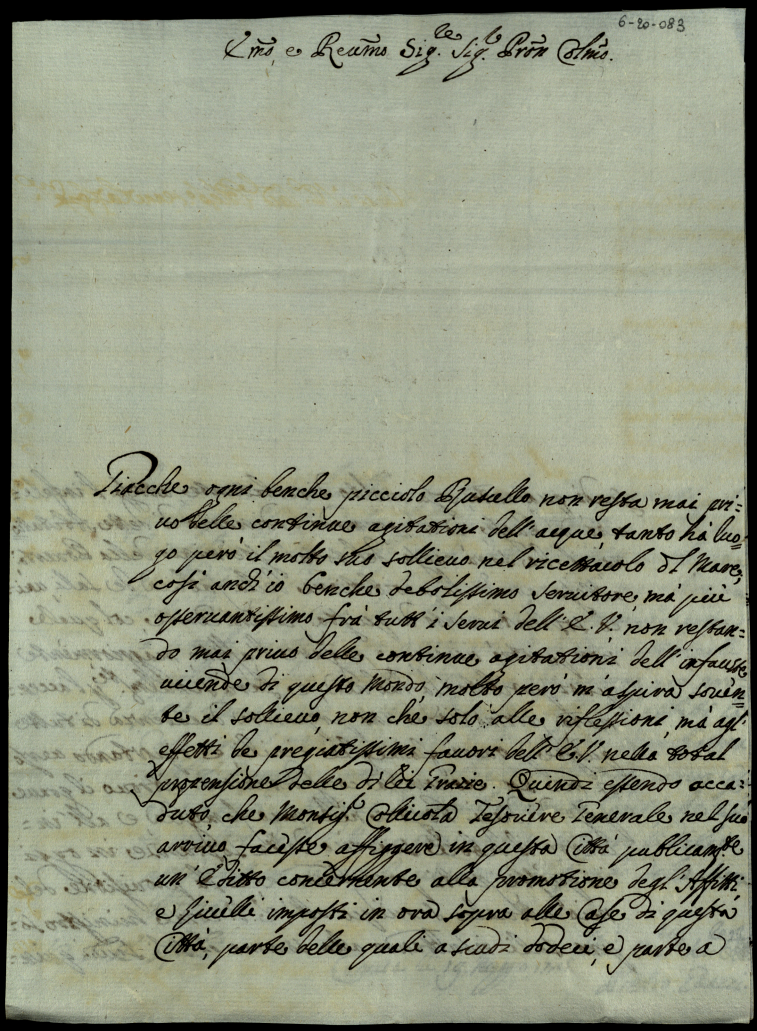 6-20-083
Emo, e Reumo Sig.re Sig.r Pron Colmo.
Giacche ogni benche picciolo Ruscello non resta mai pri=
uo delle continue agitationi dell'acque, tanto há luo=
go peró il molto suo sollieuo nel ricettacolo del Mare,
cosi anch'io benche debolissimo seruitore, má piú
osseruantissimo frá tutt'i serui dell'E.V. non restan=
do mai priuo delle continue agitationi dell'infauste
uicende di questo Mondo, molto peró m'aspira souen=
te il sollieuo, non che solo alle riflessioni, má agl'
effetti de pregiatissimi fauori dell'E.V. nella total
propensione delle di lei Grazie. Quindi essendo acca=
duto che Monsig.r Collicola Tesoriere Generale nel suo
arriuo facesse affiggere in questa Cittá publicam.te
un'Editto concernente alla promotione degl'Affitti
e Giulli imposti in ora sopra alle Case di questa
Cittá, parte delle quali a scudi dodeci, e parte a